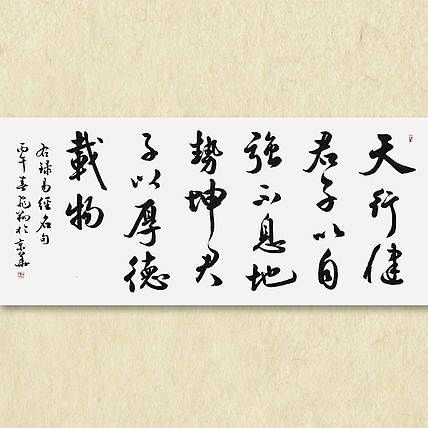 天行健
君子以自
强不息地
勢坤君
子以厚德
載物
右録易經名句
丙午春於京華